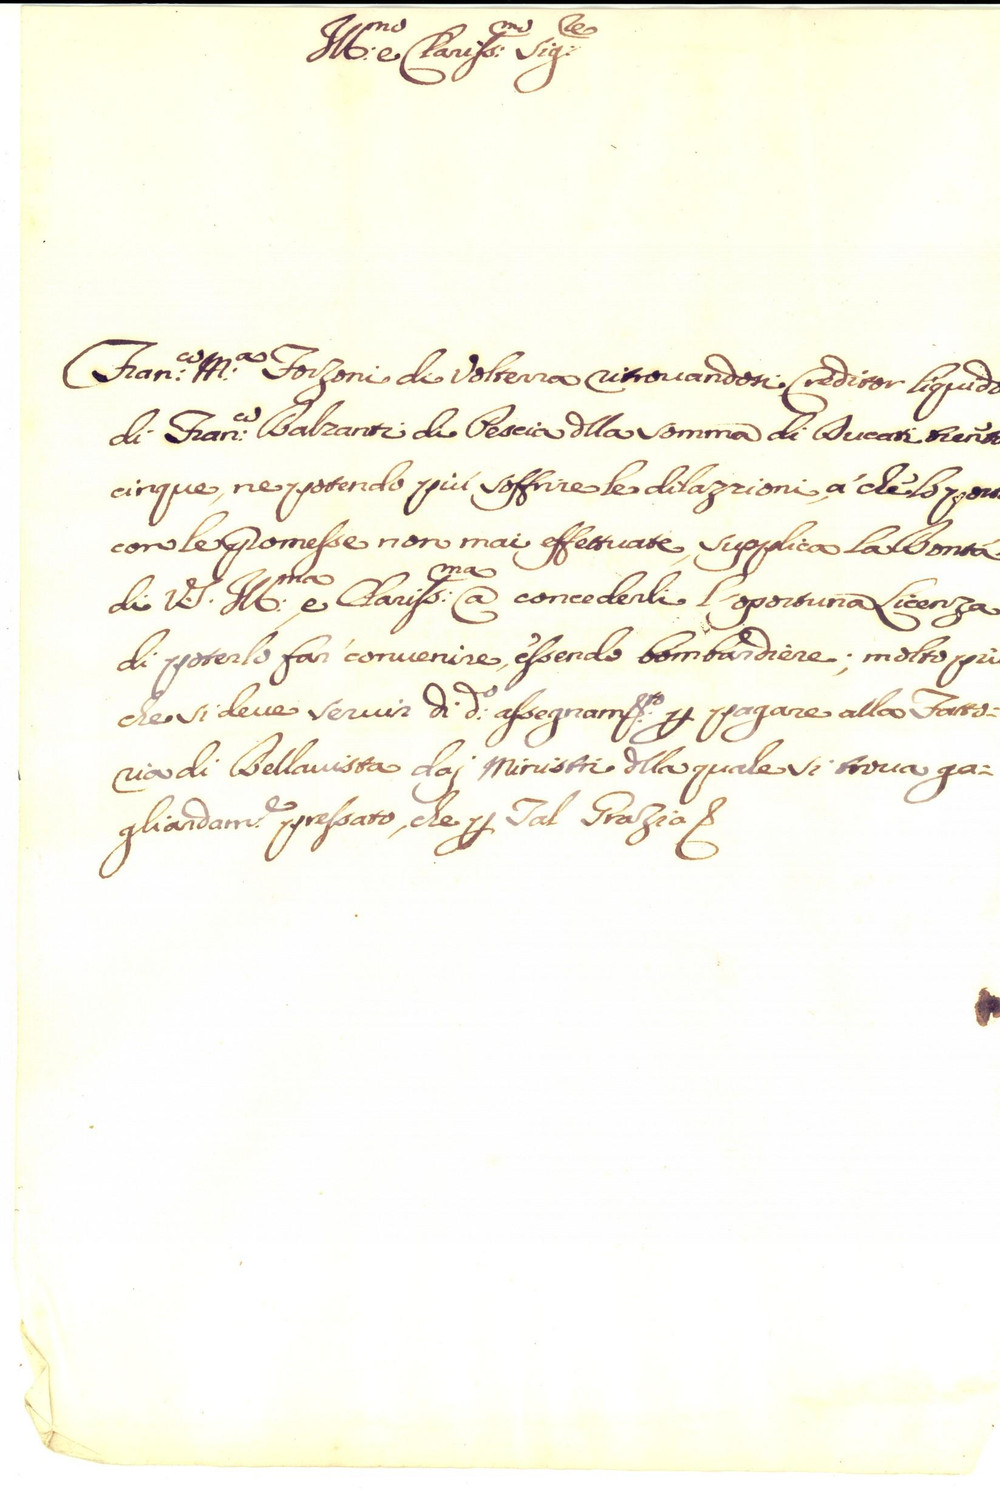 Ill:mo e Clariss:mo Sig:re
Fran:co M:a Forzoni di Volterra ritrouandosi Creditor liquido
di Fran:co Balzanti di Pescia dlla somma di Ducati trenta
cinque, ne potendo più soffrire le dilazzioni, à che lo port
con le promesse non mai effettuate, supplica la Bontà
di V.S. Ill:ma e Clariss:ma a concederli l'oportuna Licenza
di poterlo far conuenire, essendo bombardiere; molto più
che si deue seruir di d:o assegnam:to p pagare alla Fatto=
ria di Bellauista daj Ministri dlla quale si troua ga=
gliardam:e pressato, che p Tal Grazia